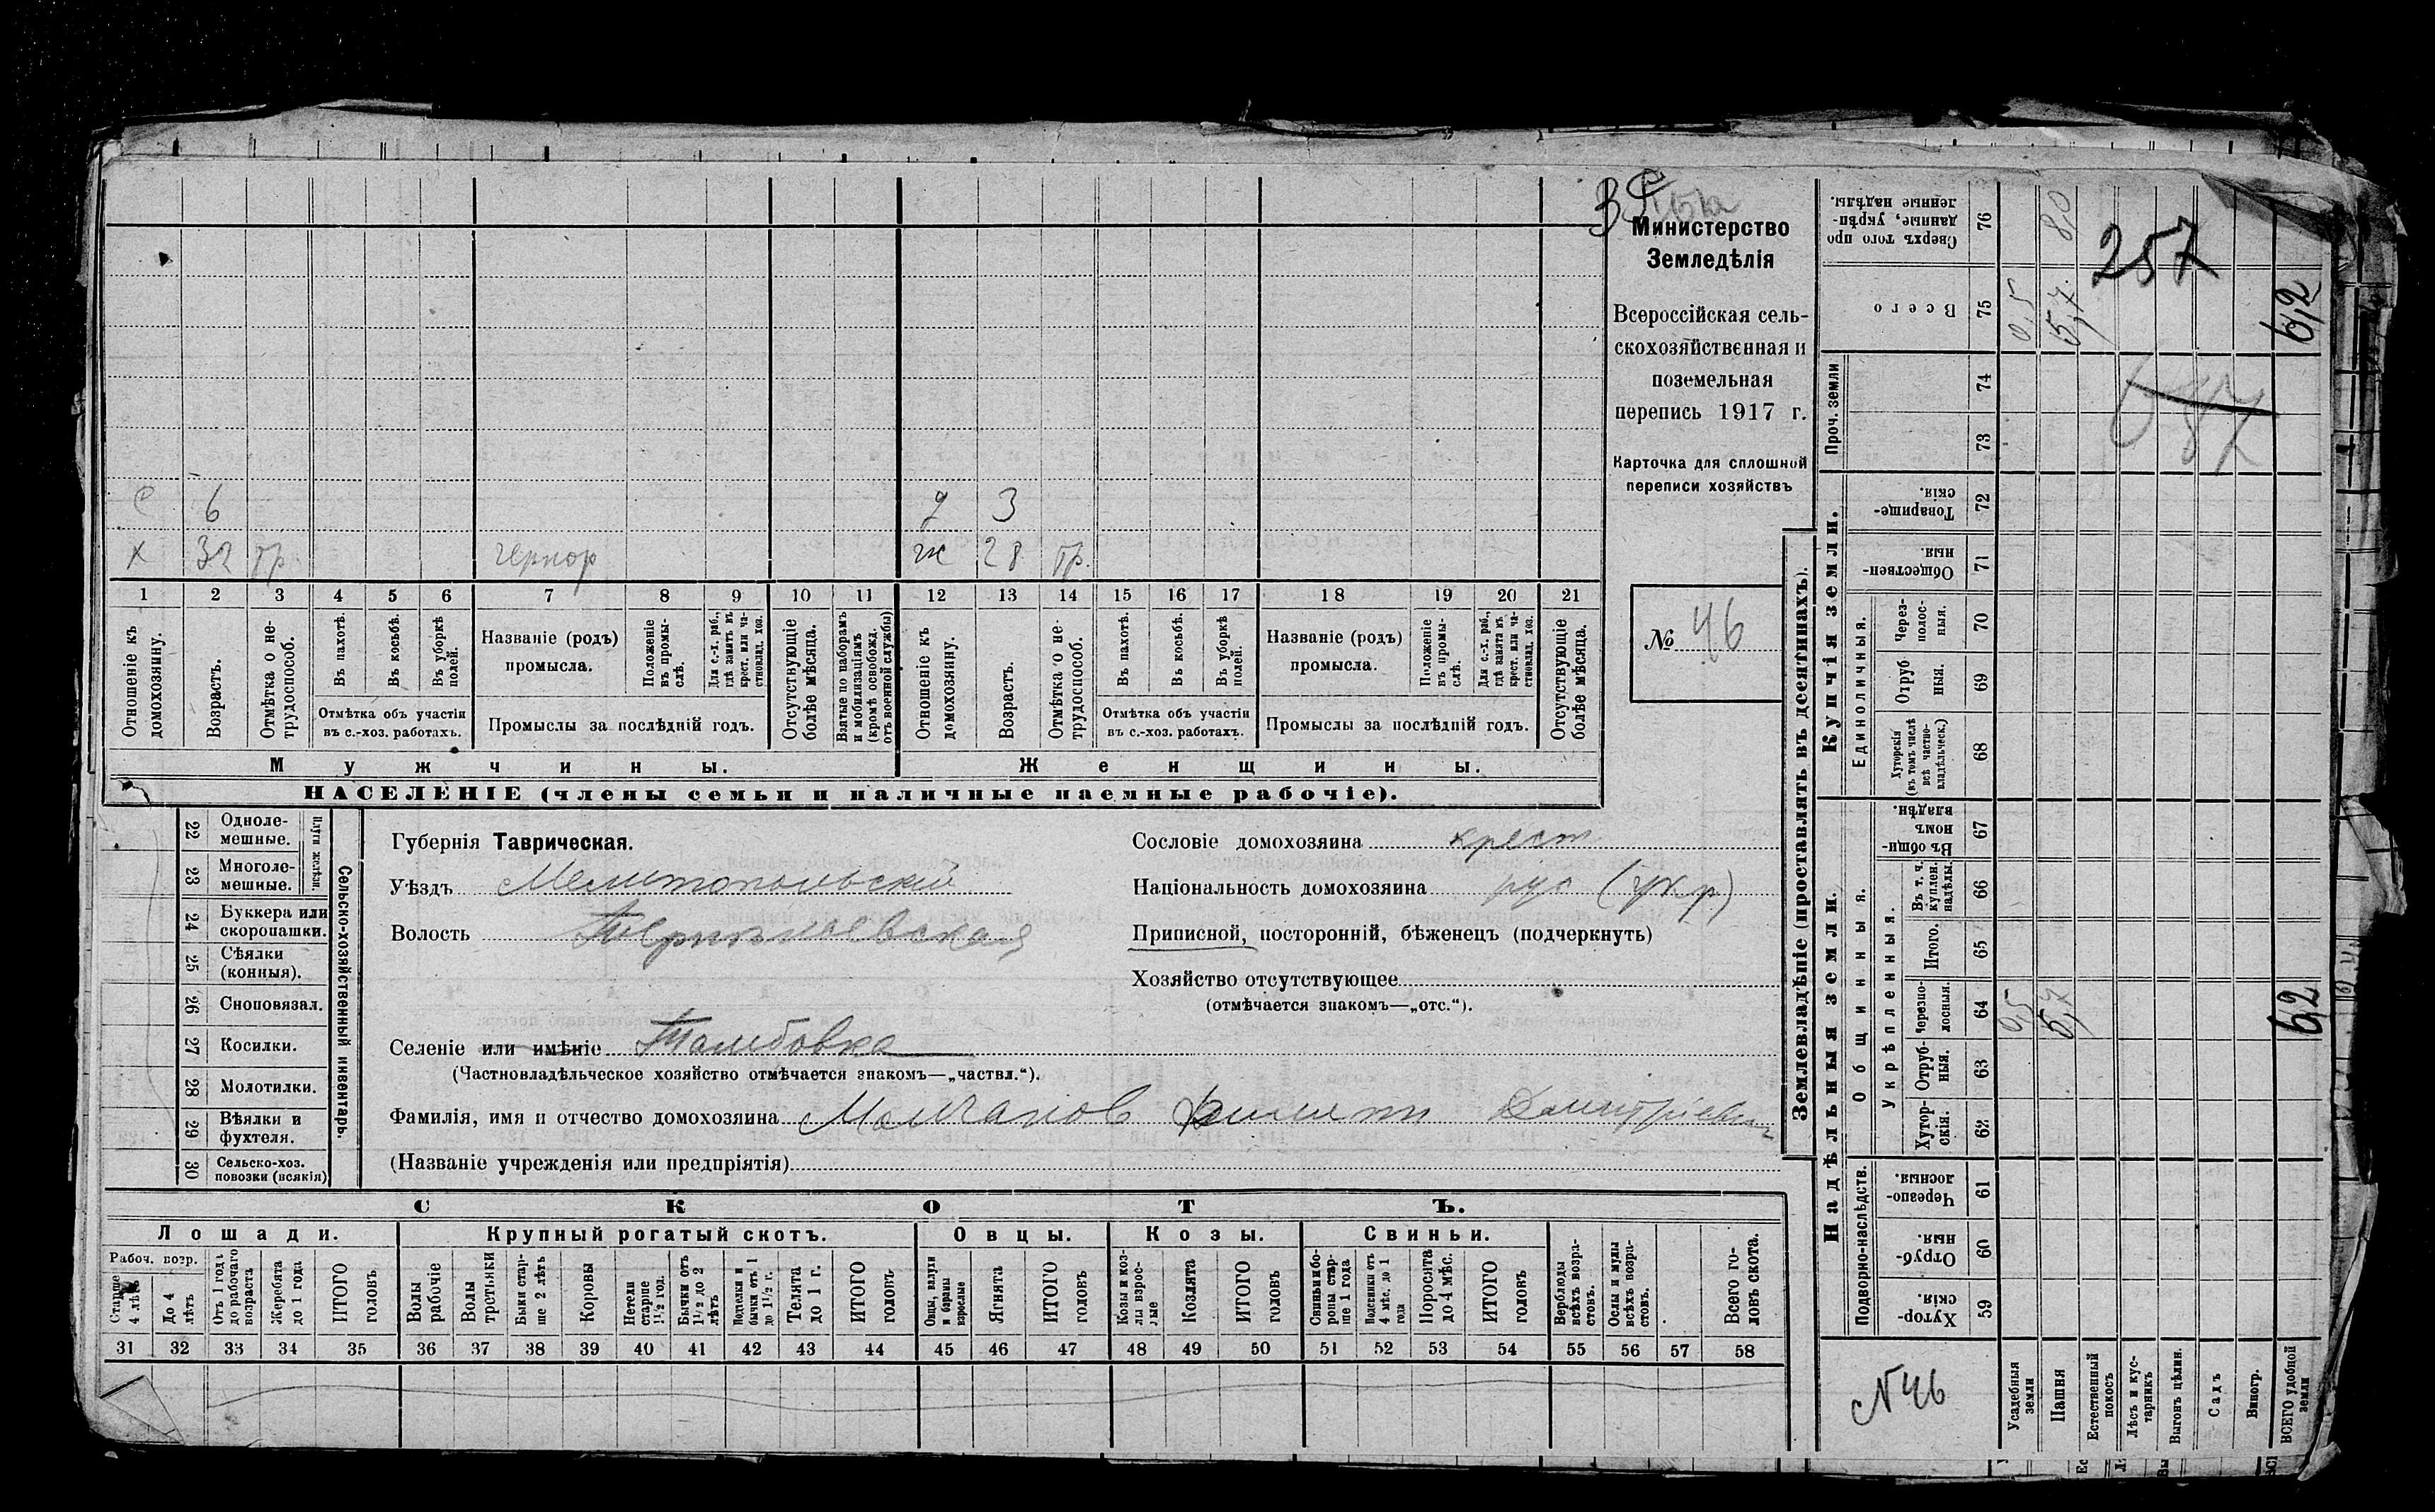 Министерство
Земледѣлія
Всероссійская сель-
скохозяйственная и
поземельная
перепись 1917 г.
Карточка для сплошной
переписи хозяйствъ
№ 46
с 6
х 32 гр. чернор
д 3
ж 28 гр.
1 2 3 4 5 6 7 8 9 10 11 12 13 14 15 16 17 18 19 20 21
Отношеніе къ домохозяину.
Возрастъ.
Отмѣтка о не-
трудоспособ.
Въ пахотѣ.
Въ косьбѣ.
Въ уборкѣ
полей.
Отмѣтка объ участіи
въ с.-хоз. работахъ.
Названіе (родъ)
промысла.
Положеніе
въ промы-
слѣ.
Для с.-х. раб.,
гдѣ занятъ въ
крест. или ча-
стновлад. хоз.
Промыслы за послѣдній годъ.
Отсутствующіе
болѣе мѣсяца.
Взятые по наборамъ
и мобилизаціямъ
(кромѣ освобожд.
отъ военной службы)
Отношеніе къ
домохозяину.
Возрастъ.
Отмѣтка о не-
трудоспособ.
Въ пахотѣ.
Въ косьбѣ.
Въ уборкѣ
полей.
Отмѣтка объ участіи
въ с.-хоз. работахъ.
Названіе (родъ)
промысла.
Положеніе
въ промы-
слѣ.
Для с.-х. раб.,
гдѣ занята въ
крест. или ча-
стновлад. хоз.
Промыслы за послѣдній годъ.
Отсутствующіе
болѣе мѣсяца.
Мужчины.
Женщины.
НАСЕЛЕНІЕ (члены семьи и наличные наемные рабочіе).
22 Одноле-
мешные.
23 Многоле-
мешные.
Плуги желѣзн.
24 Буккера или
скоропашки.
25 Сѣялки
(конныя).
26 Сноповязал.
27 Косилки.
28 Молотилки.
29 Вѣялки и
фухтеля.
30 Сельско-хоз.
повозки (всякія)
Сельско-хозяйственный инвентарь.
Губернія Таврическая.
Уѣздъ Мелитопольскій
Волость
Селеніе или имѣніе Тамбовка
(Частновладѣльческое хозяйство отмѣчается знакомъ—„частвл.“).
Фамилія, имя и отчество домохозяина Молчанов Филипп Дмитріевич
(Названіе учрежденія или предпріятія)
Сословіе домохозяина крест
Національность домохозяина рус (укр)
Приписной, посторонній, бѣженецъ (подчеркнуть)
Хозяйство отсутствующее
(отмѣчается знакомъ—„отс.“).
СКОТЪ.
Лошади.
Крупный рогатый скотъ.
Овцы.
Козы.
Свиньи.
Рабоч. возр.
Старше
4 лѣтъ
До 4
лѣтъ
Отъ 1 года
до рабочаго
возраста
Жеребята
до 1 года
ИТОГО
головъ
Волы
рабочіе
Волы
третьяки
Быки стар-
ше 2 лѣтъ
Коровы
Нетели
старше
1½ год.
Бычки отъ
1½ до 2
лѣтъ
Подтелки и
бычки отъ 1
до 1½ г.
Телята
до 1 г.
ИТОГО
головъ
Овцы, валухи
и бараны
взрослые
Ягнята
ИТОГО
головъ
Козы и коз-
лы взрос-
лые
Козлята
ИТОГО
головъ
Свиньи и бо-
ровы стар-
ше 1 года
Подсвинки отъ
4 мѣс. до 1
года
Поросята
до 4 мѣс.
ИТОГО
головъ
Верблюды
всѣхъ возра-
стовъ.
Ослы и мулы
всѣхъ возра-
стовъ.
Всего го-
ловъ скота.
31 32 33 34 35 36 37 38 39 40 41 42 43 44 45 46 47 48 49 50 51 52 53 54 55 56 57 58
Землевладѣніе (проставлять въ десятинахъ).
Купчія земли.
Надѣльныя земли.
Сверхъ того про
данные, укрѣп-
ленные надѣлы. 76 8,0
257
Всего 75 0,5 5,7 6,2
Проч. земли 74
73
Товарище-
скія. 72
Обществен-
ныя 71
Единоличныя.
Через-
полос-
ныя. 70
Отруб
ныя. 69
Хуторскія
(въ томъ числѣ
всѣ частно-
владѣльческ.) 68
Общинныя.
Въ общи-
номъ
владѣн. 67
Укрѣпленныя.
Въ т. ч.
куплен.
надѣлы 66
Итого. 65
Черезпо-
лосныя. 64 0,5 5,7 6,2
Отруб-
ныя. 63
Хутор-
скія. 62
Подворно-наслѣдств.
Черезпо-
лосныя. 61
Отруб-
ныя. 60
Хутор-
скія. 59
N 46
Усадебныя
земли
Пашня
Естественный
покосъ
Лѣсъ и кус-
тарникъ
Выгонъ цѣлин.
Садъ
Виногр.
ВСЕГО удобной
земли